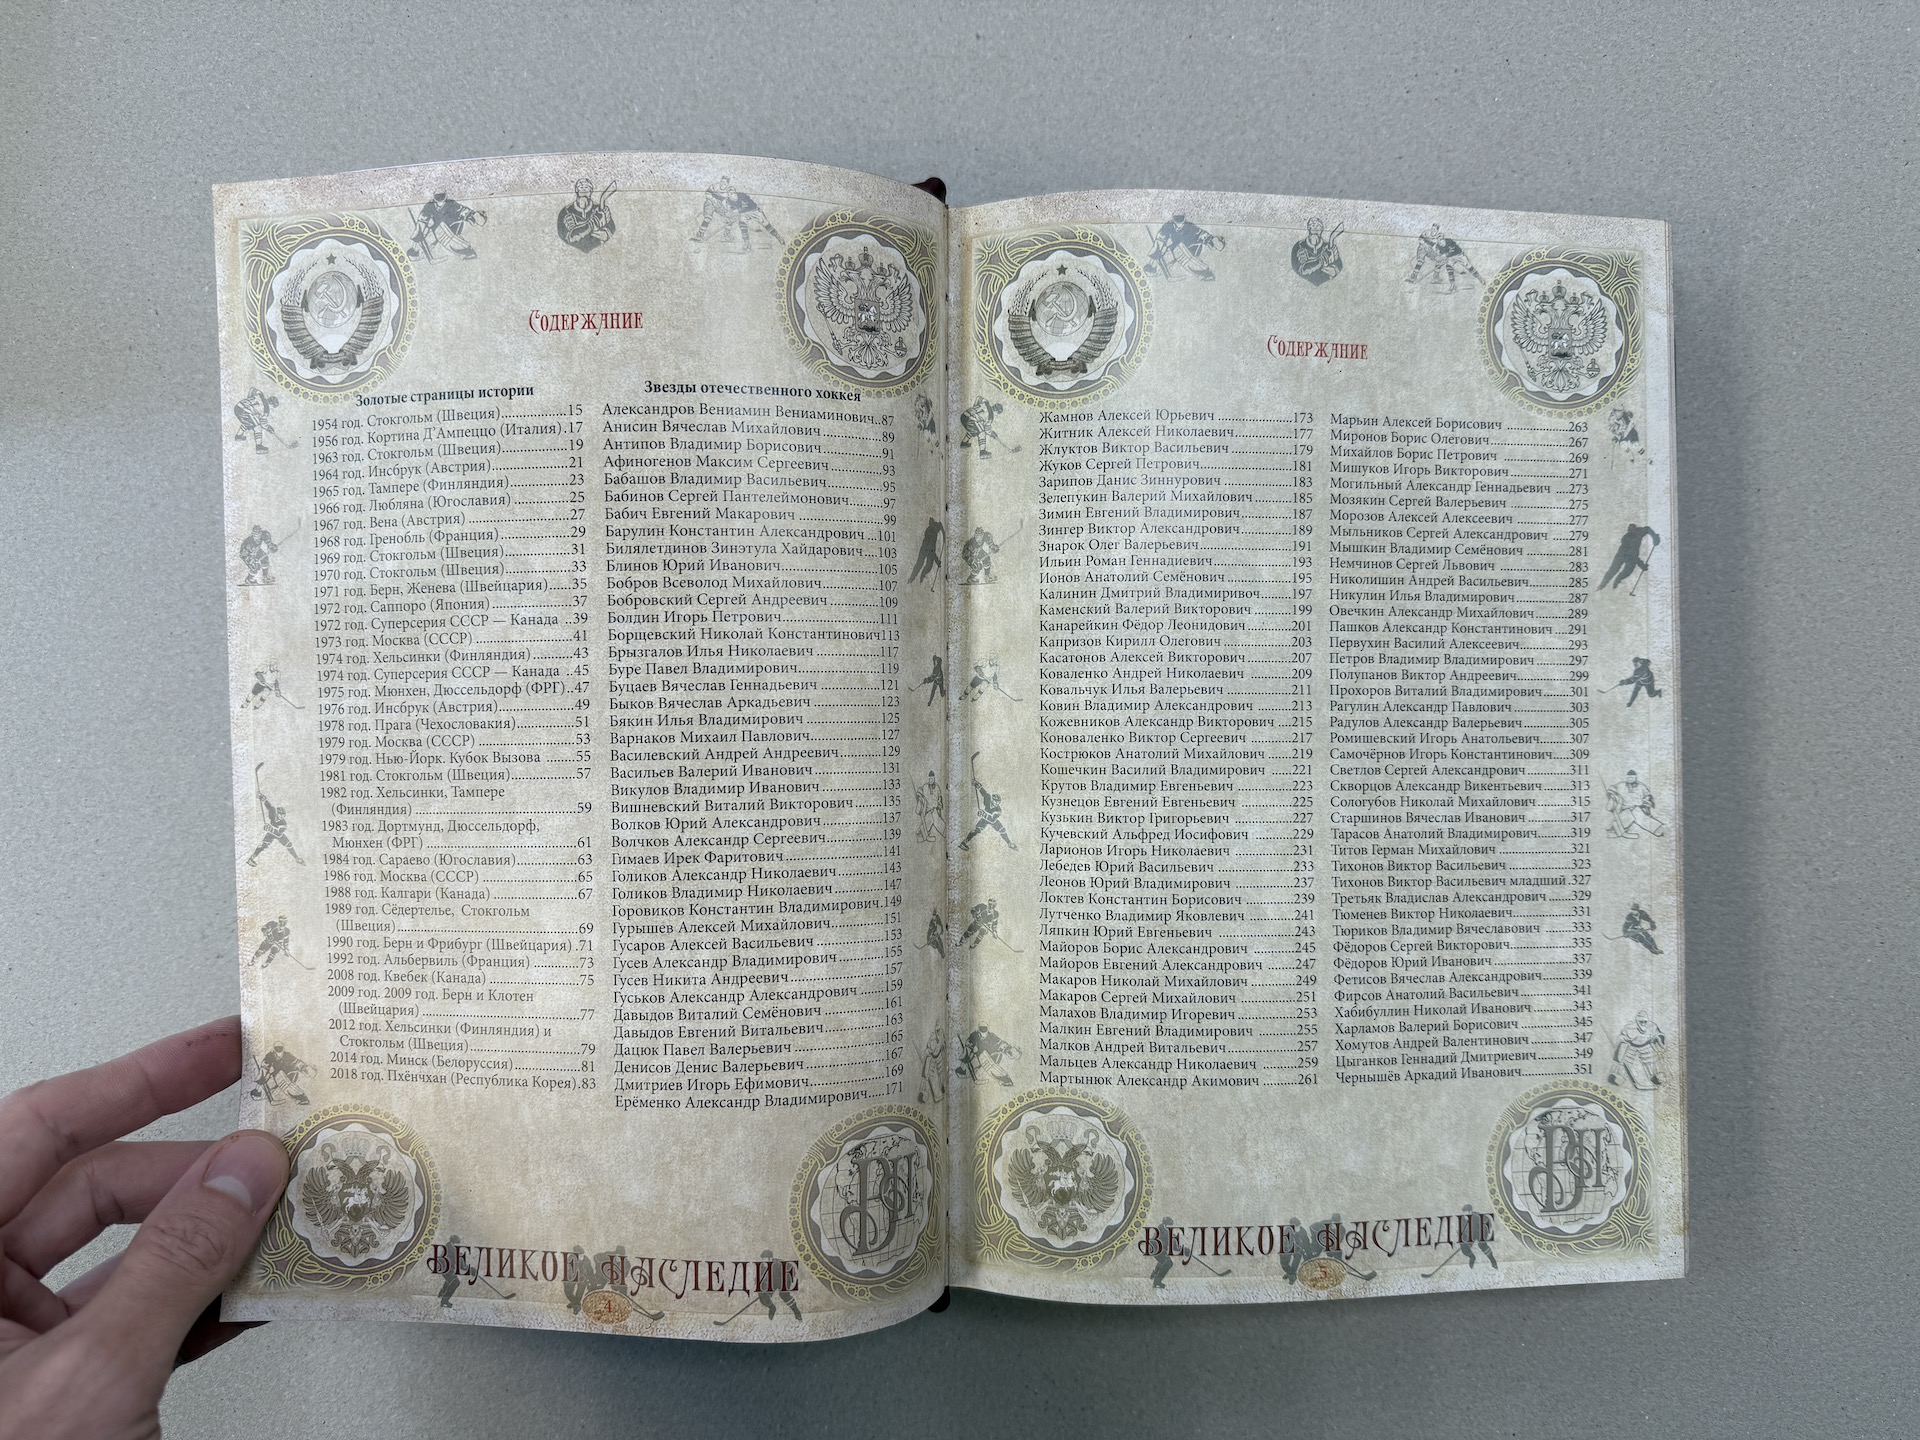 Содержание
Золотые страницы истории
1954 год. Стокгольм (Швеция)................15
1956 год. Кортина Д’Ампеццо (Италия).17
1963 год. Стокгольм (Швеция)................19
1964 год. Инсбрук (Австрия)...................21
1965 год. Тампере (Финляндия)..............23
1966 год. Любляна (Югославия)..............25
1967 год. Вена (Австрия) .........................27
1968 год. Гренобль (Франция)..................29
1969 год. Стокгольм (Швеция)................31
1970 год. Стокгольм (Швеция)................33
1971 год. Берн, Женева (Швейцария)......35
1972 год. Саппоро (Япония)....................37
1972 год. Суперсерия СССР — Канада ..39
1973 год. Москва (СССР) ........................41
1974 год. Хельсинки (Финляндия)..........43
1974 год. Суперсерия СССР — Канада ..45
1975 год. Мюнхен, Дюссельдорф (ФРГ)..47
1976 год. Инсбрук (Австрия)...................49
1978 год. Прага (Чехословакия)..............51
1979 год. Москва (СССР) ........................53
1979 год. Нью-Йорк. Кубок Вызова .......55
1981 год. Стокгольм (Швеция)................57
1982 год. Хельсинки, Тампере
(Финляндия) ........................................59
1983 год. Дортмунд, Дюссельдорф,
Мюнхен (ФРГ) .....................................61
1984 год. Сараево (Югославия)...............63
1986 год. Москва (СССР) ........................65
1988 год. Калгари (Канада) .....................67
1989 год. Сёдертелье, Стокгольм
(Швеция)..............................................69
1990 год. Берн и Фрибург (Швейцария) .71
1992 год. Альбервиль (Франция) ...........73
2008 год. Квебек (Канада) .......................75
2009 год. 2009 год. Берн и Клотен
(Швейцария) .......................................77
2012 год. Хельсинки (Финляндия) и
Стокгольм (Швеция)...........................79
2014 год. Минск (Белоруссия) ................81
2018 год. Пхёнчхан (Республика Корея).83
Звезды отечественного хоккея
Александров Вениамин Вениаминович..87
Анисин Вячеслав Михайлович ..............89
Антипов Владимир Борисович...............91
Афиногенов Максим Сергеевич .............93
Бабашов Владимир Васильевич..............95
Бабинов Сергей Пантелеймонович.........97
Бабич Евгений Макарович .....................99
Барулин Константин Александрович ...101
Билялетдинов Зинэтула Хайдарович....103
Блинов Юрий Иванович.......................105
Бобров Всеволод Михайлович..............107
Бобровский Сергей Андреевич .............109
Болдин Игорь Петрович.......................111
Борщевский Николай Константинович113
Брызгалов Илья Николаевич ................117
Буре Павел Владимирович...................119
Буцаев Вячеслав Геннадьевич ..............121
Быков Вячеслав Аркадьевич ................123
Бякин Илья Владимирович ..................125
Варнаков Михаил Павлович .................127
Василевский Андрей Андреевич...........129
Васильев Валерий Иванович ................131
Викулов Владимир Иванович ..............133
Вишневский Виталий Викторович .......135
Волков Юрий Александрович...............137
Волчков Александр Сергеевич..............139
Гимаев Ирек Фаритович .......................141
Голиков Александр Николаевич...........143
Голиков Владимир Николаевич ............147
Горовиков Константин Владимирович.149
Гурышев Алексей Михайлович.............151
Гусаров Алексей Васильевич ................153
Гусев Александр Владимирович............155
Гусев Никита Андреевич......................157
Гуськов Александр Александрович ......159
Давыдов Виталий Семёнович ...............161
Давыдов Евгений Витальевич ..............163
Дацюк Павел Валерьевич .....................165
Денисов Денис Валерьевич...................167
Дмитриев Игорь Ефимович..................169
Ерёменко Александр Владимирович.....171
ВЕЛИКОЕ НАСЛЕДИЕ
4
Содержание
Жамнов Алексей Юрьевич ..................173
Житник Алексей Николаевич..............177
Жлуктов Виктор Васильевич ...............179
Жуков Сергей Петрович.......................181
Зарипов Данис Зиннурович .................183
Зелепукин Валерий Михайлович .........185
Зимин Евгений Владимирович ............187
Зингер Виктор Александрович.............189
Знарок Олег Валерьевич.......................191
Ильин Роман Геннадиевич...................193
Ионов Анатолий Семёнович ................195
Калинин Дмитрий Владимиривоч.......197
Каменский Валерий Викторович .........199
Канарейкин Фёдор Леонидович ..........201
Капризов Кирилл Олегович .................203
Касатонов Алексей Викторович ...........207
Коваленко Андрей Николаевич ...........209
Ковальчук Илья Валерьевич ................211
Ковин Владимир Александрович .........213
Кожевников Александр Викторович ....215
Коноваленко Виктор Сергеевич ...........217
Кострюков Анатолий Михайлович ......219
Кошечкин Василий Владимирович ......221
Крутов Владимир Евгеньевич ..............223
Кузнецов Евгений Евгеньевич .............225
Кузькин Виктор Григорьевич ...............227
Кучевский Альфред Иосифович ..........229
Ларионов Игорь Николаевич ...............231
Лебедев Юрий Васильевич ..................233
Леонов Юрий Владимирович ...............237
Локтев Константин Борисович .............239
Лутченко Владимир Яковлевич ............241
Ляпкин Юрий Евгеньевич ...................243
Майоров Борис Александрович ............245
Майоров Евгений Александрович ........247
Макаров Николай Михайлович ............249
Макаров Сергей Михайлович ...............251
Малахов Владимир Игоревич ...............253
Малкин Евгений Владимирович ..........255
Малков Андрей Витальевич..................257
Мальцев Александр Николаевич ..........259
Мартынюк Александр Акимович .........261
Марьин Алексей Борисович .................263
Миронов Борис Олегович.....................267
Михайлов Борис Петрович ..................269
Мишуков Игорь Викторович................271
Могильный Александр Геннадьевич ....273
Мозякин Сергей Валерьевич ................275
Морозов Алексей Алексеевич ...............277
Мыльников Сергей Александрович .....279
Мышкин Владимир Семёнович ...........281
Немчинов Сергей Львович ...................283
Николишин Андрей Васильевич...........285
Никулин Илья Владимирович..............287
Овечкин Александр Михайлович.........289
Пашков Александр Константинович ....291
Первухин Василий Алексеевич.............293
Петров Владимир Владимирович .........297
Полупанов Виктор Андреевич..............299
Прохоров Виталий Владимирович........301
Рагулин Александр Павлович...............303
Радулов Александр Валерьевич.............305
Ромишевский Игорь Анатольевич.........307
Самочёрнов Игорь Константинович.....309
Светлов Сергей Александрович ............311
Скворцов Александр Викентьевич........313
Сологубов Николай Михайлович ..........315
Старшинов Вячеслав Иванович ............317
Тарасов Анатолий Владимирович..........319
Титов Герман Михайлович ...................321
Тихонов Виктор Васильевич .................323
Тихонов Виктор Васильевич младший .327
Третьяк Владислав Александрович .......329
Тюменев Виктор Николаевич................331
Тюриков Владимир Вячеславович ........333
Фёдоров Сергей Викторович.................335
Фёдоров Юрий Иванович ....................337
Фетисов Вячеслав Александрович.........339
Фирсов Анатолий Васильевич ..............341
Хабибуллин Николай Иванович ...........343
Харламов Валерий Борисович ..............345
Хомутов Андрей Валентинович ............347
Цыганков Геннадий Дмитриевич..........349
Чернышёв Аркадий Иванович..............351
ВЕЛИКОЕ НАСЛЕДИЕ
5